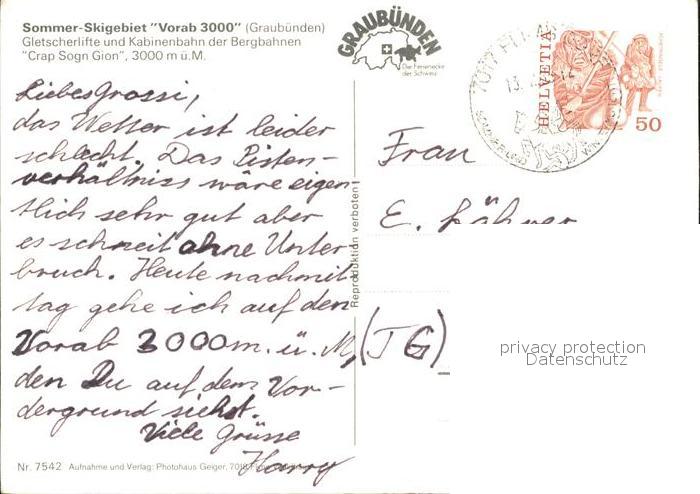 Sommer-Skigebiet "Vorab 3000" (Graubünden)
Gletscherlifte und Kabinenbahn der Bergbahnen
"Crap Sogn Gion", 3000 m ü.M.
GRAUBÜNDEN
Die Ferienecke
der Schweiz
HELVETIA
50
Liebes Grossi,
das Wetter ist leider
schlecht. Das Pisten-
verhältniss wäre eigen-
tlich sehr gut aber
es schneit ohne Unter
bruch. Heute nachmit
tag gehe ich auf den
Vorab 3000m. ü. M,
den Du auf dem Vor-
dergrund siehst.
Viele Grüsse
Harry
Reproduktion verboten
Frau
E.
(TG)
privacy protection
Datenschutz
Nr. 7542 Aufnahme und Verlag: Photohaus Geiger,